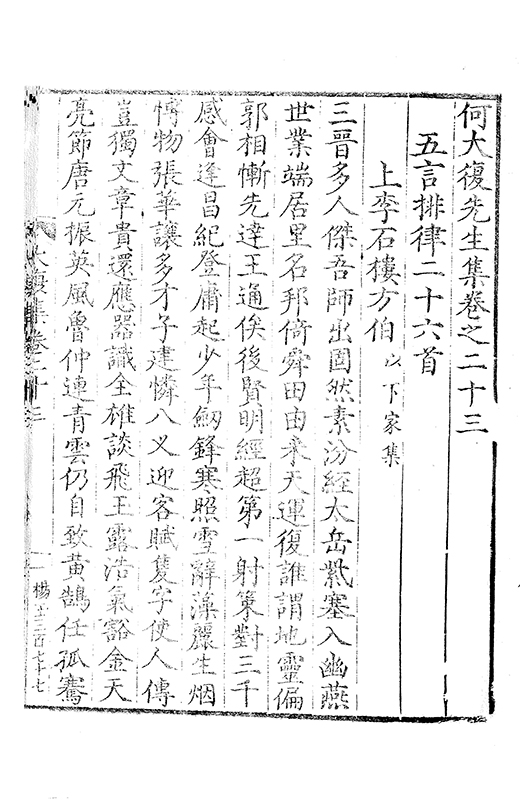 何大復先生集卷之二十三
五言排律二十六首
上李石樓方伯以下家集
三晉多人傑吾師出固然素汾經太岳紫塞入幽燕
世業端居里名邦倚舜田由来天運復誰謂地靈偏
郭相慚先達王通俟後賢明經超第一射策對三千
感會逢昌紀登庸起少年劒鋒寒照雪辭藻麗生烟
博物張華讓多才子建憐八叉迎客賦隻字使人傳
豈獨文章貴還應器識全雄談飛玉露浩氣豁金天
亮節唐元振英風魯仲連青雲仍自致黄鵠任孤騫
大復集卷二十三
一